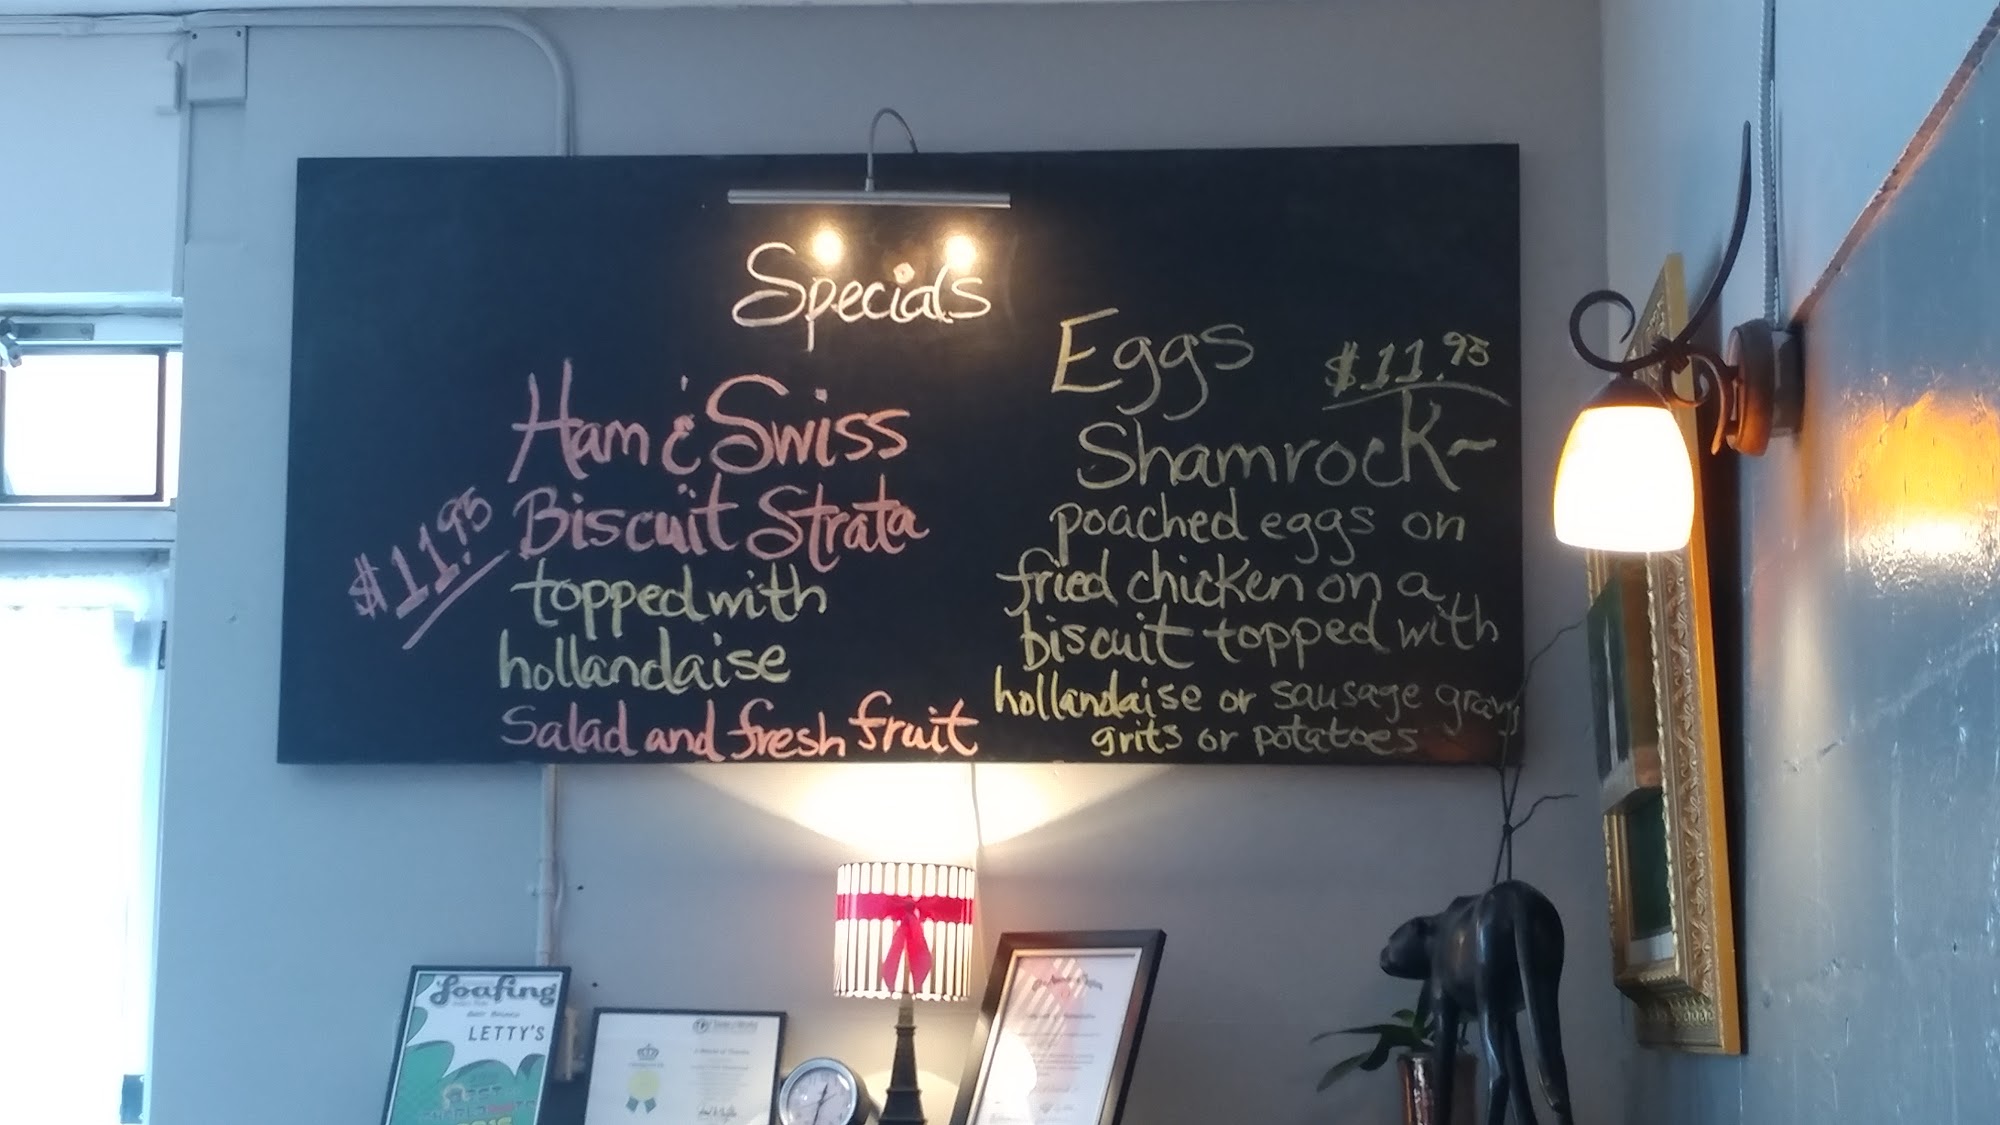 Specials
Ham & Swiss
Biscuit Strata
$11.95
topped with
hollandaise
Salad and fresh fruit
Eggs $11.95
Shamrock~
poached eggs on
fried chicken on a
biscuit topped with
hollandaise or sausage gravy
grits or potatoes
Loafing
LETTY'S
BEST